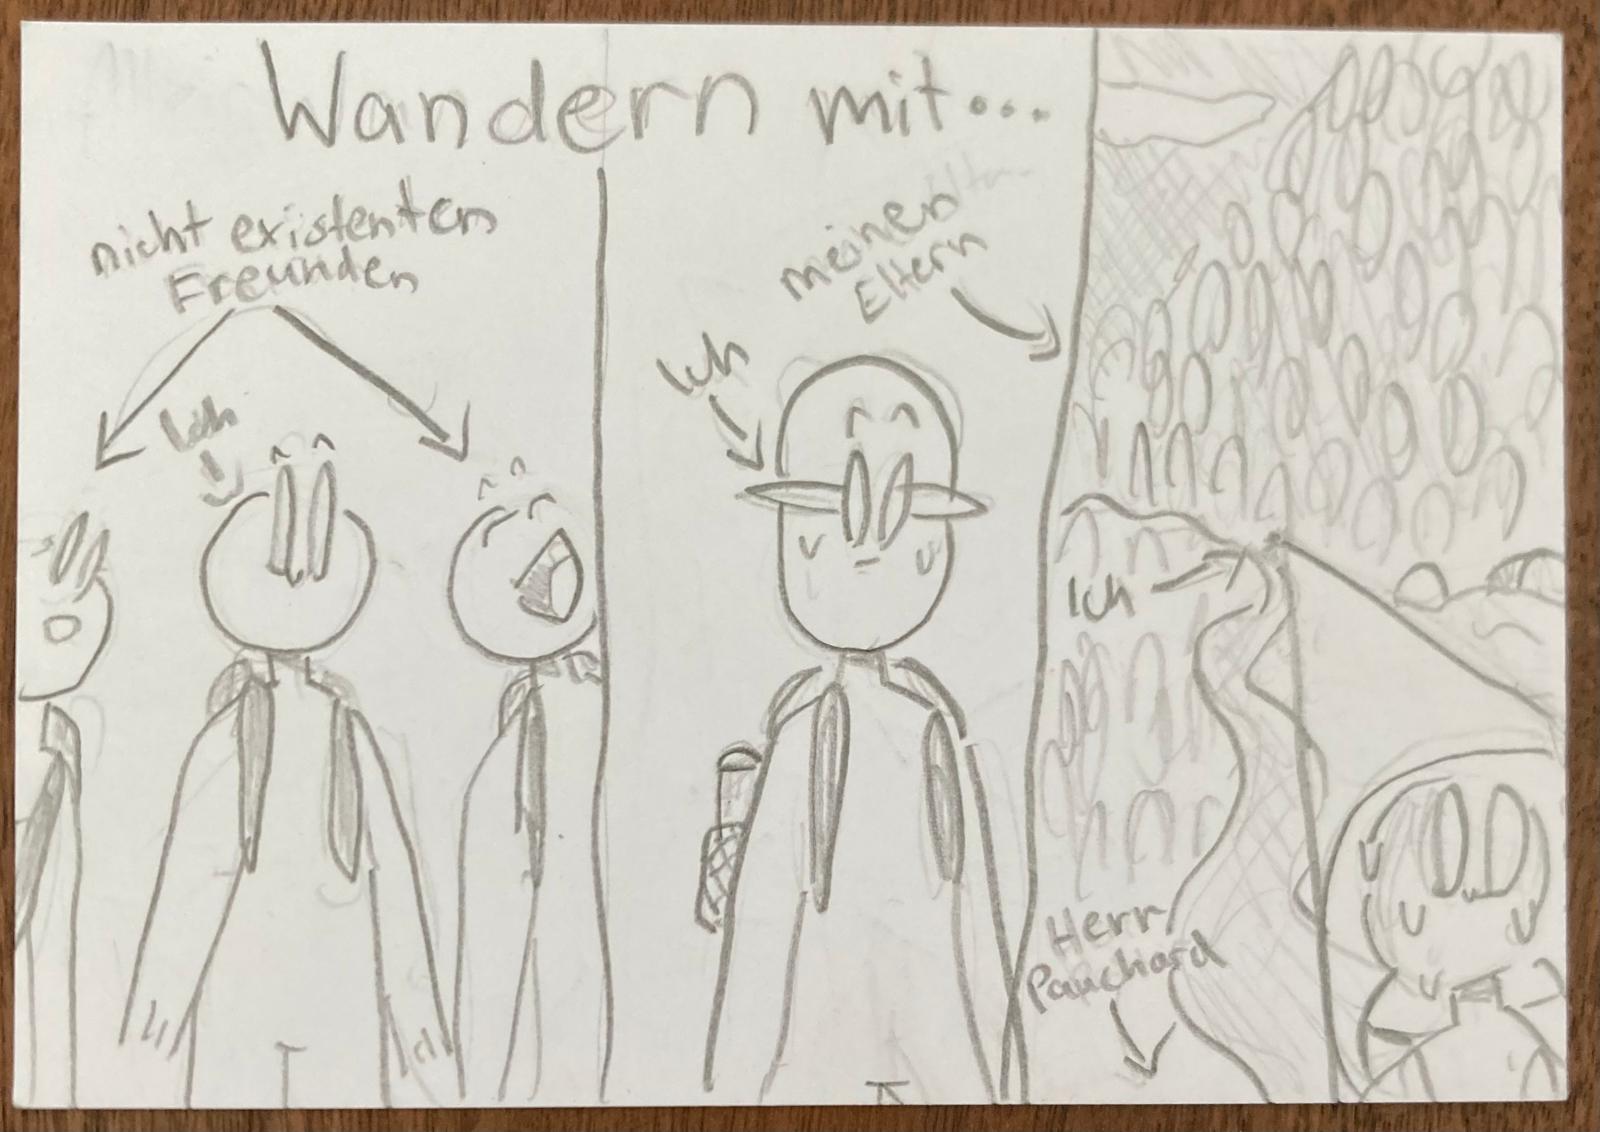 Wandern mit...
nicht existenten
Freunden
Ich
meinen
Eltern
Ich
Ich
Herr
Pauchard